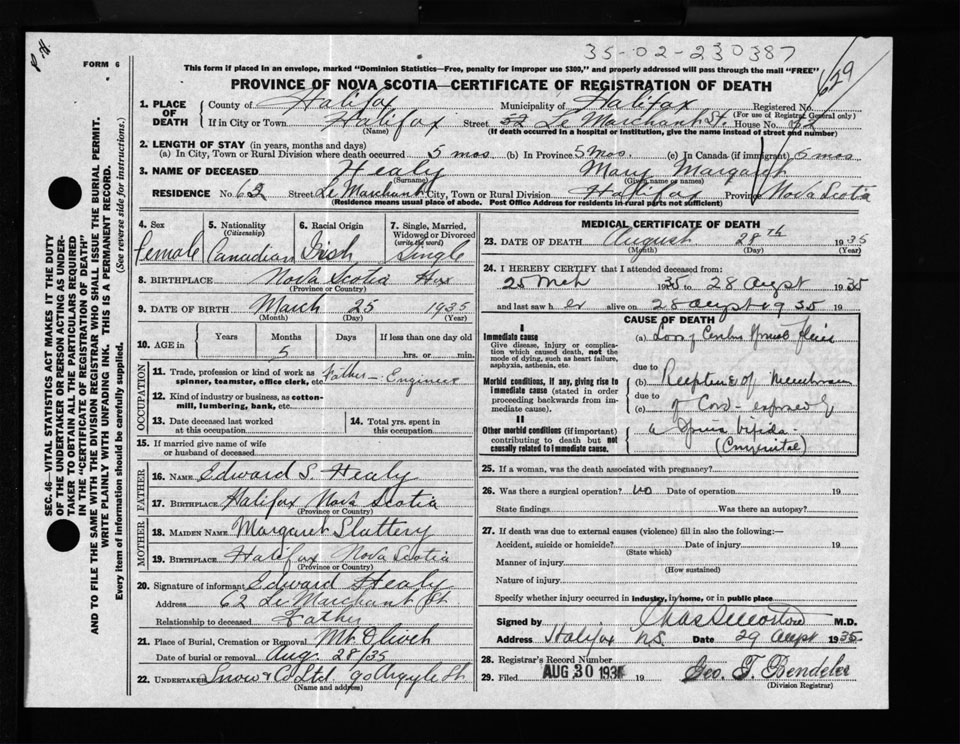 35-02-230387
FORM 6
This form if placed in an envelope, marked "Dominion Statistics—Free, penalty for improper use $300," and properly addressed will pass through the mail "FREE"
629
PROVINCE OF NOVA SCOTIA—CERTIFICATE OF REGISTRATION OF DEATH
1. PLACE OF DEATH
County of Halifax Municipality of Halifax Registered No.
(For use of Registrar General only)
If in City or Town Halifax Street Le Marchant St. House No. 62
(Name) (If death occurred in a hospital or institution, give the name instead of street and number)
2. LENGTH OF STAY (in years, months and days)
(a) In City, Town or Rural Division where death occurred 5 mos (b) In Province 5 Mos. (c) In Canada (if immigrant) 5 mos
3. NAME OF DECEASED Healy Mary Margaret
(Surname) (Given name or names)
RESIDENCE No. 62 Street Le Marchant City, Town or Rural Division Halifax Province Nova Scotia
(Residence means usual place of abode. Post Office Address for residents in rural parts not sufficient)
4. Sex
Female
5. Nationality
(Citizenship)
Canadian
6. Racial Origin
Irish
7. Single, Married, Widowed or Divorced
(write the word)
Single
8. BIRTHPLACE Nova Scotia Hfx
(Province or Country)
9. DATE OF BIRTH March 25 1935
(Month) (Day) (Year)
10. AGE in
Years Months Days If less than one day old
5 hrs. or min.
OCCUPATION
11. Trade, profession or kind of work as spinner, teamster, office clerk, etc. Father - Engineer
12. Kind of industry or business, as cotton-mill, lumbering, bank, etc.
13. Date deceased last worked at this occupation
14. Total yrs. spent in this occupation
15. If married give name of wife or husband of deceased
FATHER
16. NAME Edward S. Healy
17. BIRTHPLACE Halifax Nova Scotia
(Province or Country)
MOTHER
18. MAIDEN NAME Margaret Slattery
19. BIRTHPLACE Halifax Nova Scotia
(Province or Country)
20. Signature of informant Edward Healy
Address 62 Le Marchant St
Relationship to deceased Father
21. Place of Burial, Cremation or Removal Mt. Olivet
Date of burial or removal Aug. 28/35
22. UNDERTAKER Snow & Co Ltd. 90 Argyle St
(Name and address)
MEDICAL CERTIFICATE OF DEATH
23. DATE OF DEATH August 28TH 1935
(Month) (Day) (Year)
24. I HEREBY CERTIFY that I attended deceased from:
25 Mch 1935 to 28 August 1935
and last saw her alive on 28 August 1935 19
CAUSE OF DEATH
I
Immediate cause
Give disease, injury or complication which caused death, not the mode of dying, such as heart failure, asphyxia, asthenia, etc.
(a) Loss of
due to
Morbid conditions, if any, giving rise to immediate cause (stated in order proceeding backwards from immediate cause).
(b) of
due to
(c) of Cord - exposed
II
Other morbid conditions (if important) contributing to death but not causally related to immediate cause.
a Spina bifida
(Congenital)
25. If a woman, was the death associated with pregnancy?
26. Was there a surgical operation? no Date of operation 19
State findings Was there an autopsy?
27. If death was due to external causes (violence) fill in also the following:—
Accident, suicide or homicide? Date of injury 19
(State which)
Manner of injury
(How sustained)
Nature of injury
Specify whether injury occurred in industry, in home, or in public place
Signed by M.D.
Address Halifax N.S. Date 29 August 1935
28. Registrar's Record Number
29. Filed AUG 30 193 19 Geo. T. Bendeler
(Division Registrar)
SEC. 46—VITAL STATISTICS ACT MAKES IT THE DUTY
OF THE UNDERTAKER OR PERSON ACTING AS UNDER-
TAKER TO OBTAIN ALL THE PARTICULARS REQUIRED
IN THE "CERTIFICATE OF REGISTRATION OF DEATH"
AND TO FILE THE SAME WITH THE DIVISION REGISTRAR WHO SHALL ISSUE THE BURIAL PERMIT.
WRITE PLAINLY WITH UNFADING INK. THIS IS A PERMANENT RECORD.
Every item of information should be carefully supplied. (See reverse side for instructions.)